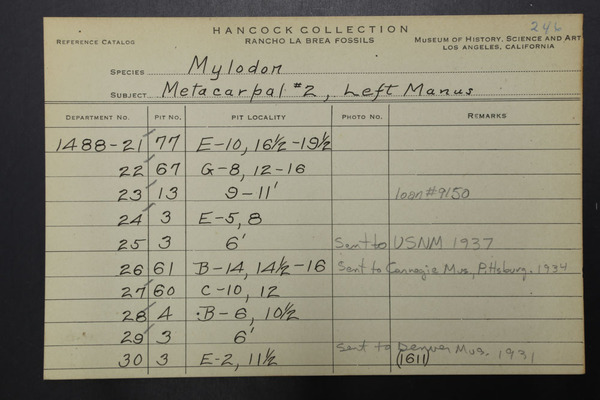 246
HANCOCK COLLECTION
REFERENCE CATALOG
RANCHO LA BREA FOSSILS
MUSEUM OF HISTORY, SCIENCE AND ART
LOS ANGELES, CALIFORNIA
SPECIES Mylodon
SUBJECT Metacarpal #2, Left Manus
DEPARTMENT NO. PIT NO. PIT LOCALITY PHOTO NO. REMARKS
1488-21 77 E-10, 16½-19½
22 67 G-8, 12-16
23 13 9-11' loan #9150
24 3 E-5, 8
25 3 6' Sent to USNM 1937
26 61 B-14, 14½-16 Sent to Carnegie Mus, Pittsburg. 1934
27 60 C-10, 12
28 4 B-6, 10½
29 3 6'
Sent to Denver Mus. 1931
30 3 E-2, 11½ (1611)